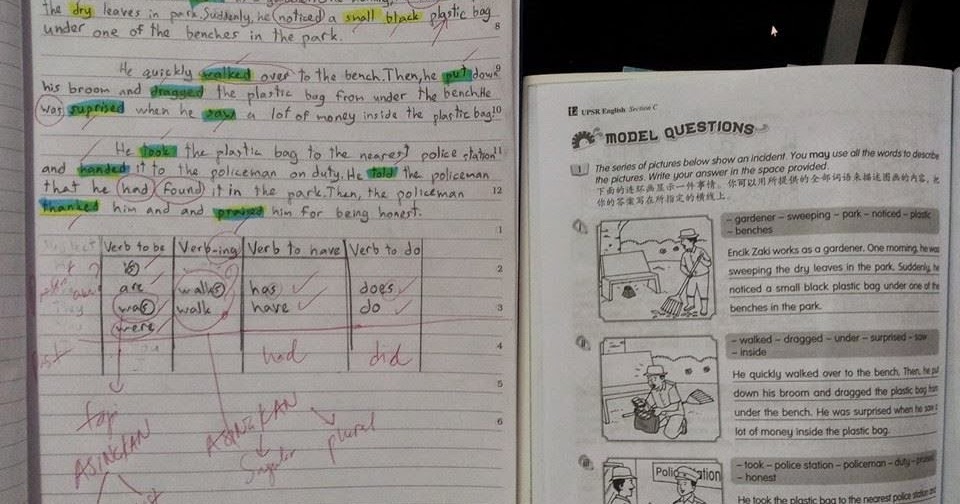 the dry leaves in park. Suddenly, he noticed a small black plastic bag
under one of the benches in the park.
8
He quickly walked over to the bench. Then, he put down
9
his broom and dragged the plastic bag from under the bench. He
was suprised when he saw a lot of money inside the plastic bag.
10
He took the plastic bag to the nearest police station
11
and handed it to the policeman on duty. He told the policeman
that he had found it in the park. Then, the policeman
12
thanked him and and praised him for being honest.
1
Subject Verb to be Verb-ing Verb to have Verb to do
is
2
are walks has does
was walk have do
3
were
had did
4
5
for
ASINGKAN
ASINGKAN
6
Singular
plural
UPSR English Section C
MODEL QUESTIONS
1 The series of pictures below show an incident. You may use all the words to describe
the pictures. Write your answer in the space provided.
下面的连环画显示一件事情。你可以用所提供的全部词语来描述图画的内容，把
你的答案写在所指定的横线上。
– gardener – sweeping – park – noticed – plastic
– benches
Encik Zaki works as a gardener. One morning, he was
sweeping the dry leaves in the park. Suddenly, he
noticed a small black plastic bag under one of the
benches in the park.
– walked – dragged – under – surprised – saw
– inside
He quickly walked over to the bench. Then, he put
down his broom and dragged the plastic bag from
under the bench. He was surprised when he saw a
lot of money inside the plastic bag.
Police Station
– took – police station – policeman – duty – praised
– honest
He took the plastic bag to the nearest police station and